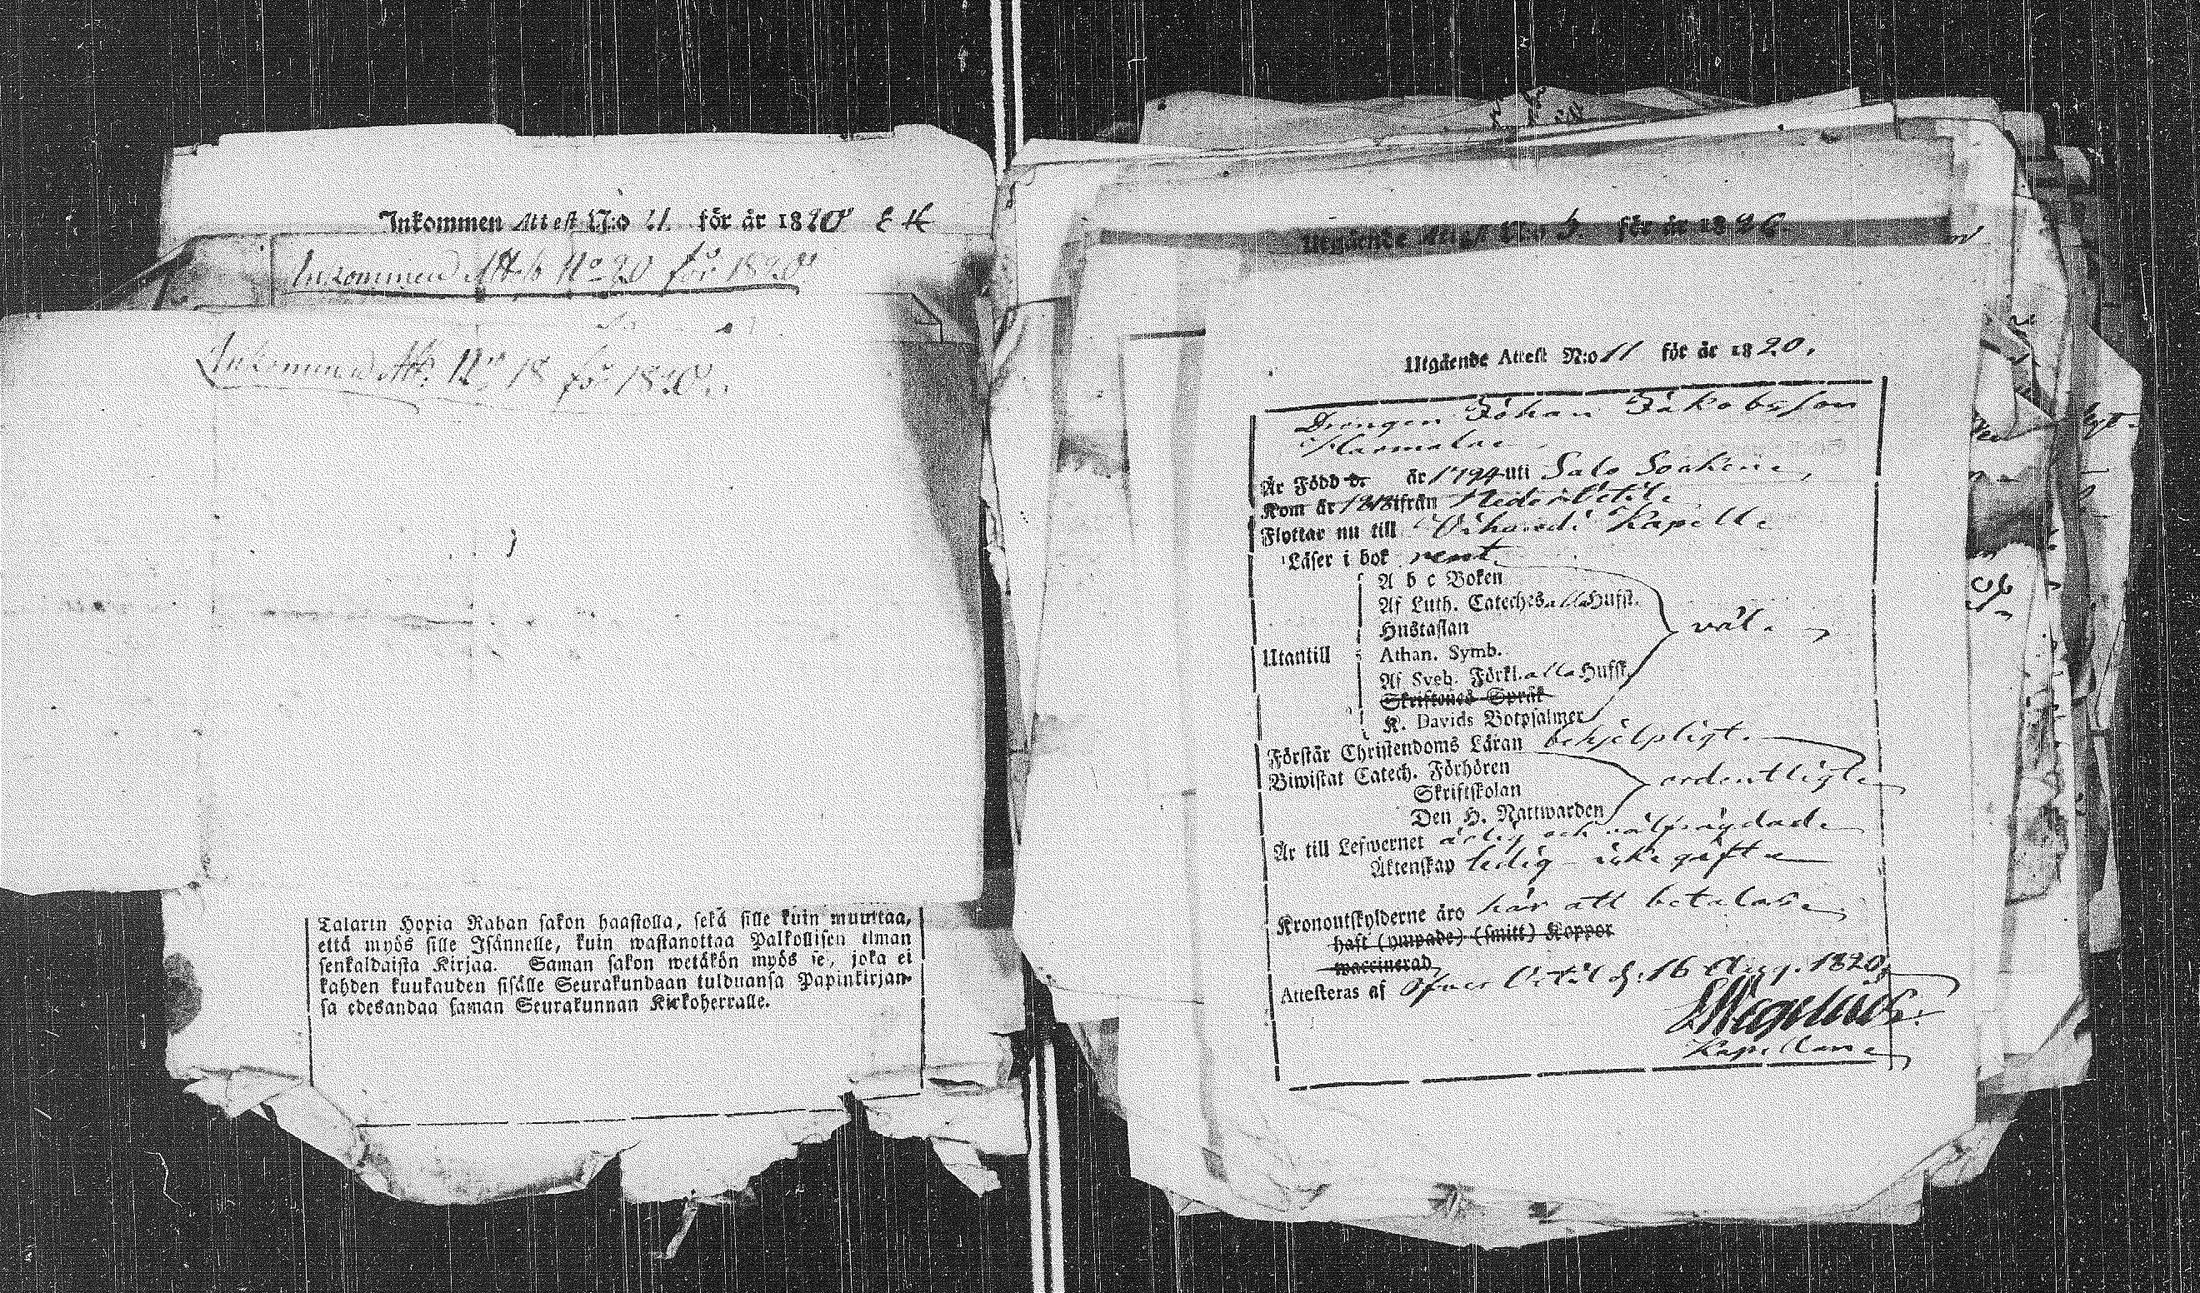 Inkommen Attest N:o 21. för år 1820
Inkommen Att. No 20 för 1820
Inkommen Att. No 18 för 1820.
Talarin Hopia Rahan sakon haastolla, sekä sille kuin muuttaa,
että myös sille Isännelle, kuin wastanottaa Palkollisen ilman
senkaldaista Kirjaa. Saman sakon wetäkön myös se, joka ei
kahden kuukauden sisälle Seurakundaan tulduansa Papinkirjan-
sa edesandaa saman Seurakunnan Kirkoherralle.
Utgående Attest N:o 5. för år 18
Utgående Attest N:o 11 för år 1820.
Drengen Johan Jakobsson
Är Född d. år 1794 uti Salo Sockn
Kom år 1818 ifrån Nedervetil
Flyttar nu till Vihandi Kapell
Läser i bok rent
A b c Boken
Af Luth. Cateches alla Hufst.
Hustaflan
väl.
Utantill
Athan. Symb.
Af Sveb. Förkl. alla Hufst.
Skriftenes Språk
K. Davids Botpsalmer
Förstår Christendoms Läran behjelpligt.
Biwistat Catech. Förhören
ordentligt
Skriftskolan
Den H. Nattwarden
Är till Lefwernet ärlig och välfrägdad
Äktenskap ledig - icke gift
Kronoutskylderne äro här att betalas
haft (ympade) (smitt) Koppor
waccinerad
Attesteras af Öfver Vetil d: 16 Aug. 1820,
Wegelius
Kapellan